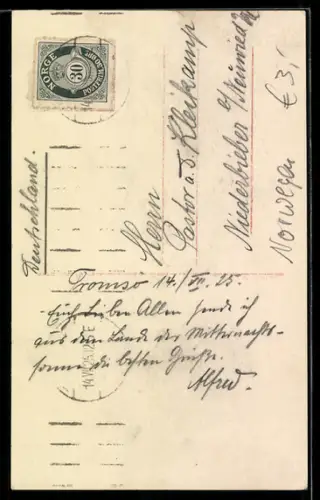 NORGE
POSTFRIM.
30
Deutschland.
Herrn
Pastor a. D. Kleikamp
Niederbieber b/ Neuwied
Norwegen
€ 3,-
Tromsö 14./VII. 25.
Euch lieben Allen sende ich
aus dem Lande der Mitternachts-
sonne die besten Grüße.
Alfred.